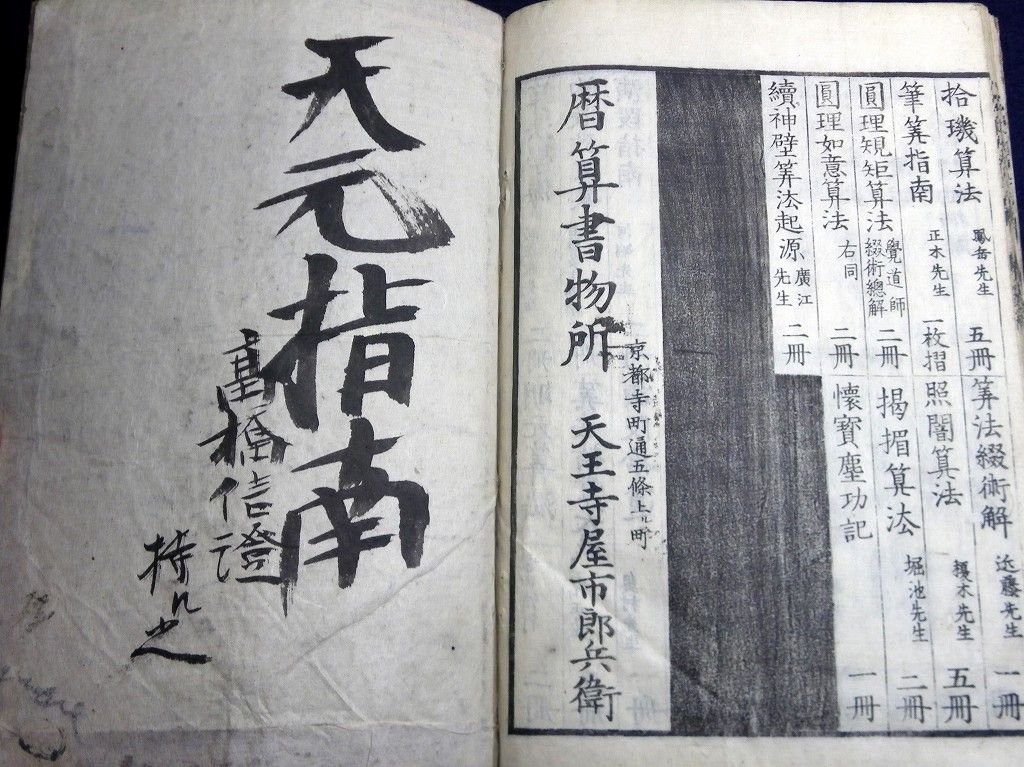 拾璣算法 鳳岳先生 五冊
筆筭指南 正木先生 一枚摺
圓理䂓矩算法 覺道師 綴術總解 二冊
圓理如意算法 右同 二冊
續神壁筭法起源 廣江先生 二冊
筭法綴術解 近藤先生 一冊
照闇筭法 榎木先生 五冊
揭揟算法 堀池先生 二冊
懷寶塵功記 一冊
京都寺町通五條上ル町
暦算書物所 天王寺屋市郎兵衛
天元指南
高橋信證
持ルル之